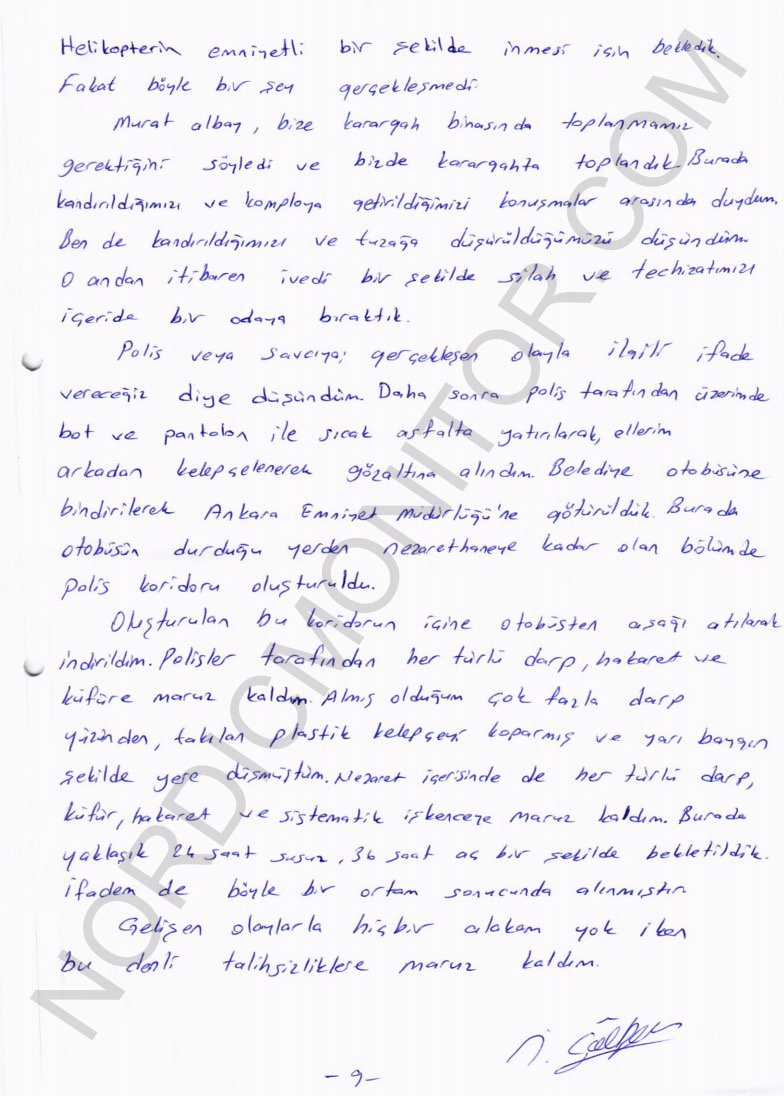 Helikopterin emniyetli bir şekilde inmesi için bekledik.
Fakat böyle bir şey gerçekleşmedi.
Murat albay, bize karargah binasında toplanmamız
gerektiğini söyledi ve bizde karargahta toplandık. Burada
kandırıldığımızı ve komploya getirildiğimizi konuşmalar arasında duydum.
Ben de kandırıldığımızı ve tuzağa düşürüldüğümüzü düşündüm.
O andan itibaren ivedi bir şekilde silah ve techizatımızı
içeride bir odaya bıraktık.
Polis veya savcıya; gerçekleşen olayla ilgili ifade
vereceğiz diye düşündüm. Daha sonra polis tarafından üzerimde
bot ve pantolon ile sıcak asfalta yatırılarak, ellerim
arkadan kelepçelenerek gözaltına alındım. Belediye otobüsüne
bindirilerek Ankara Emniyet Müdürlüğü'ne götürüldük. Burada
otobüsün durduğu yerden nezarethaneye kadar olan bölümde
polis koridoru oluşturuldu.
Oluşturulan bu koridorun içine otobüsten aşağı atılarak
indirildim. Polisler tarafından her türlü darp, hakaret ve
küfüre maruz kaldım. Almış olduğum çok fazla darp
yüzünden, takılan plastik kelepçeyi koparmış ve yarı baygın
şekilde yere düşmüştüm. Nezaret içerisinde de her türlü darp,
küfür, hakaret ve sistematik işkenceye maruz kaldım. Burada
yaklaşık 24 saat susuz, 36 saat aç bir şekilde bekletildik.
İfadem de böyle bir ortam sonucunda alınmıştır.
Gelişen olaylarla hiçbir alakam yok iken
bu denli talihsizliklere maruz kaldım.
- 9 -
NORDICMONITOR.COM